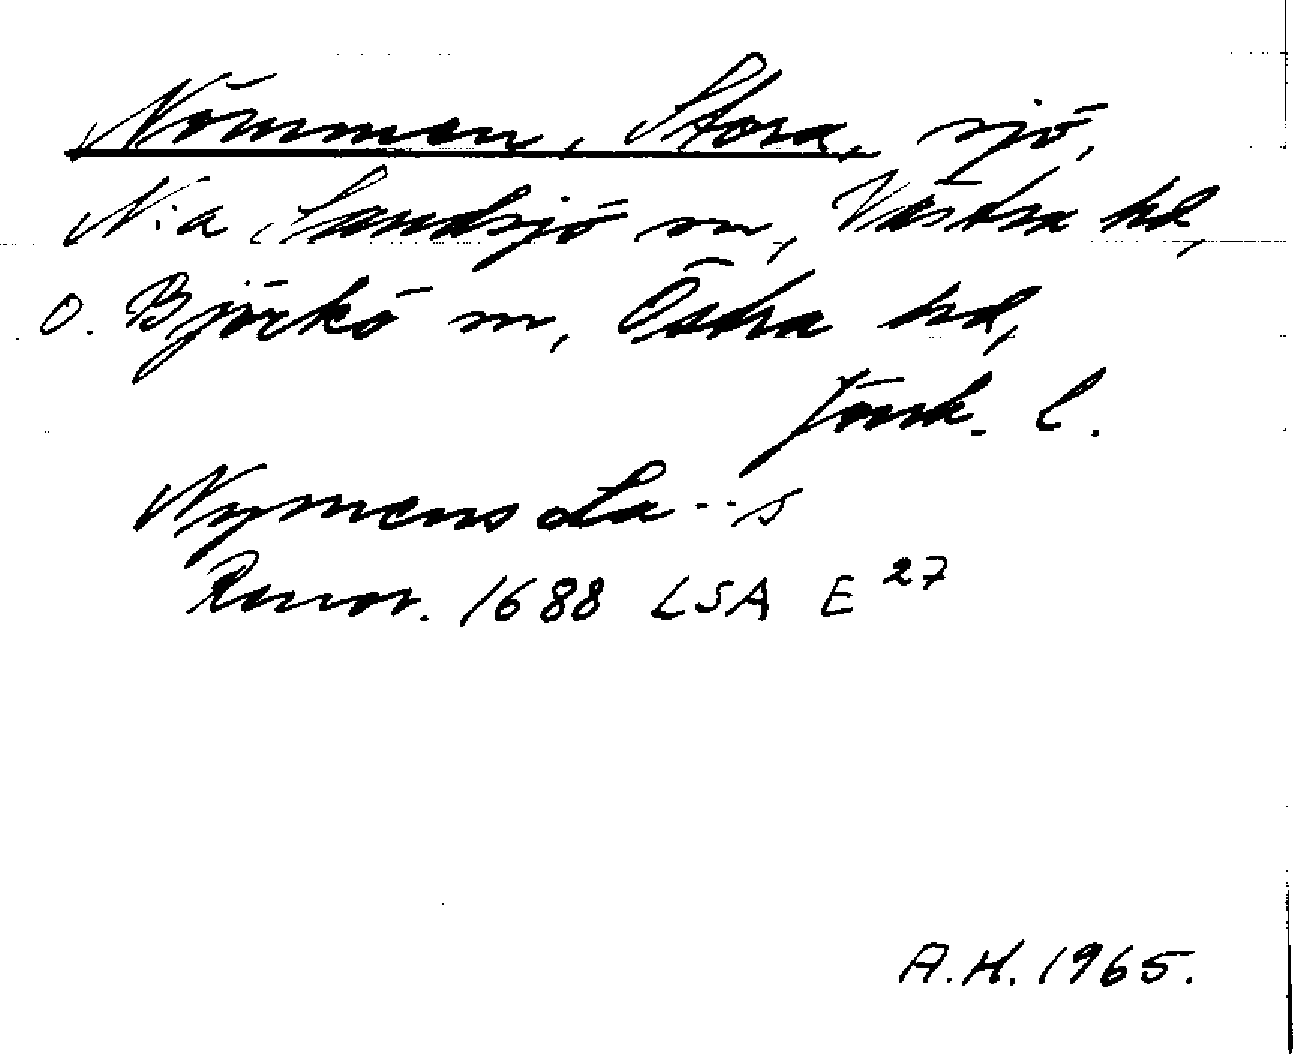 Nömmen, Stora, sjö,
N:a Sandsjö sn, Västra hd,
o. Björkö sn, Östra hd,
Jönk. l.
Nymens
Rannr. 1688 LSA E 27
A.H. 1965.